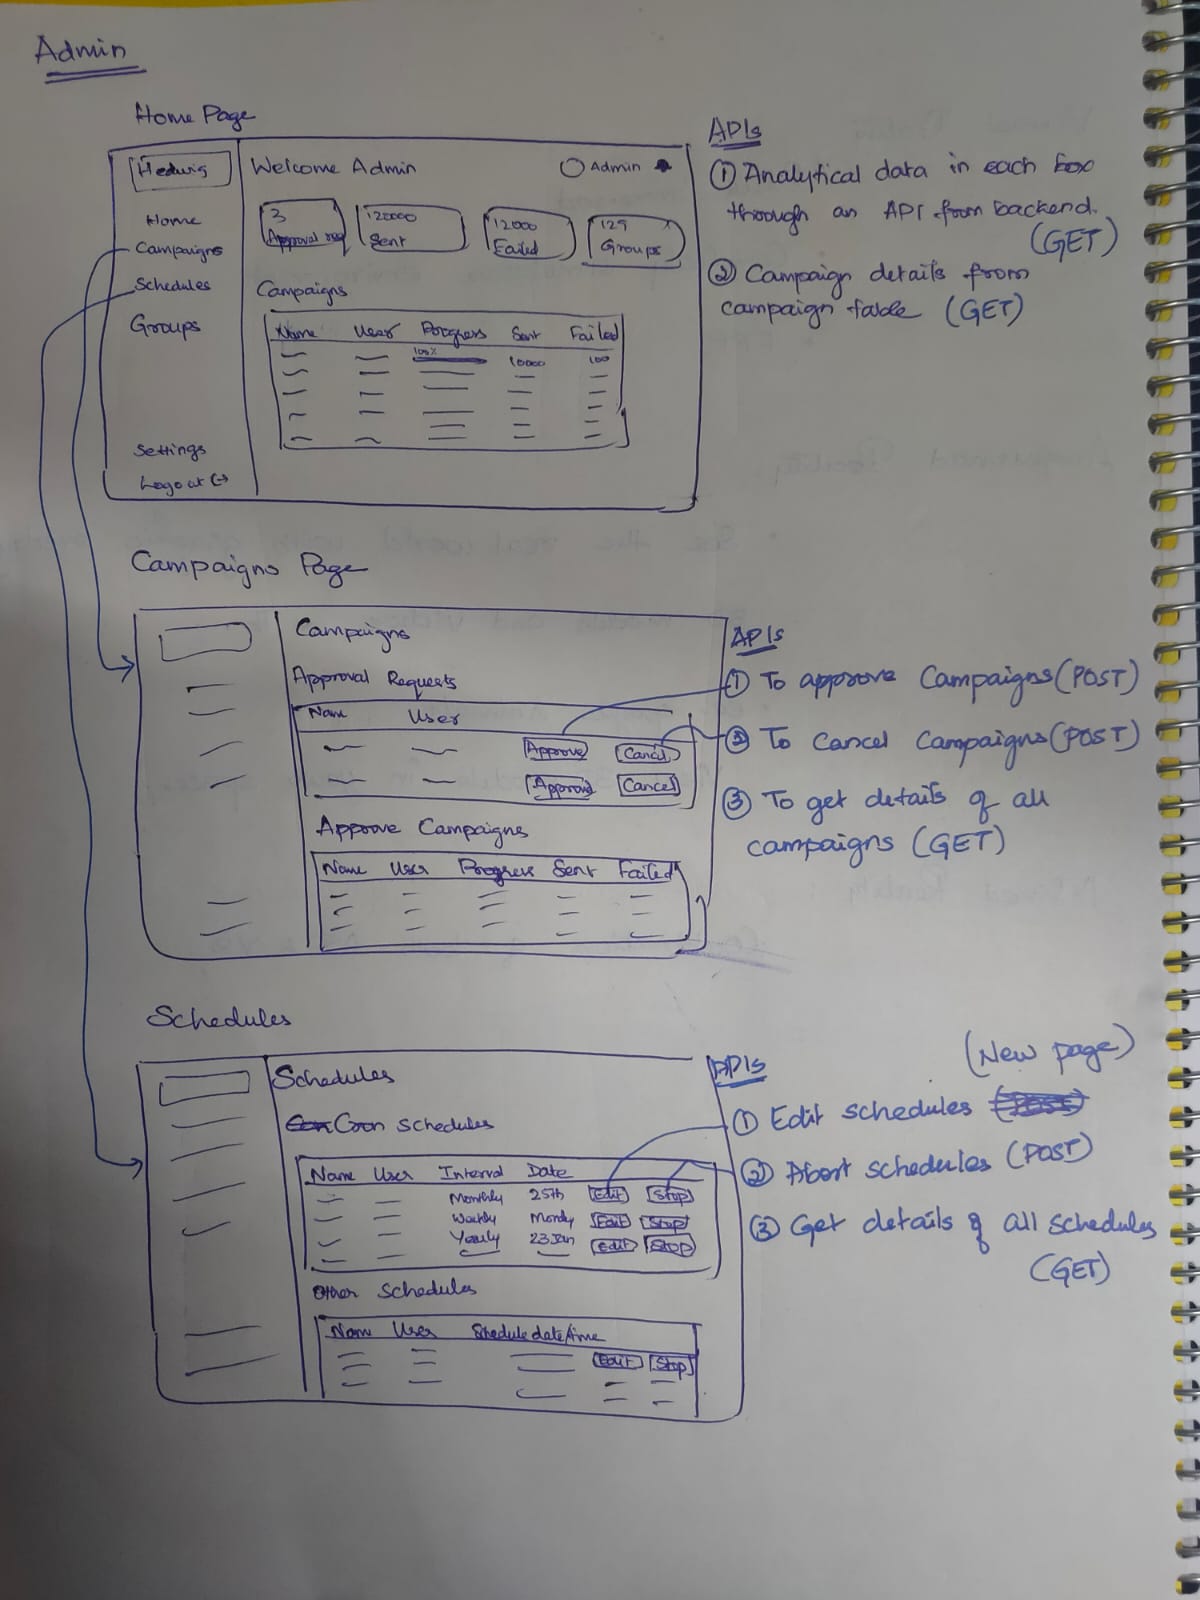 Admin
Home Page
Hedwig
Welcome Admin
Admin
Home
Campaigns
Schedules
Groups
Settings
Logout
3
Approval req
120000
Sent
12000
Failed
129
Groups
Campaigns
Name User Progress Sent Failed
100%
10000 100
APIs
① Analytical data in each box
through an API from backend.
(GET)
② Campaign details from
campaign table (GET)
Campaigns Page
Campaigns
Approval Requests
Name User
Approve Cancel
Approve Cancel
Approve Campaigns
Name User Progress Sent Failed
APIs
① To approve Campaigns (POST)
② To Cancel Campaigns (POST)
③ To get details of all
campaigns (GET)
Schedules
Schedules
Cron schedules
Name User Interval Date
Monthly 25th Edit Stop
Weekly Mondy Edit Stop
Yearly 23 Jan Edit Stop
Other schedules
Name User Schedule date/time
Edit Stop
APIs
(New page)
① Edit schedules
② Abort schedules (POST)
③ Get details of all schedules
(GET)